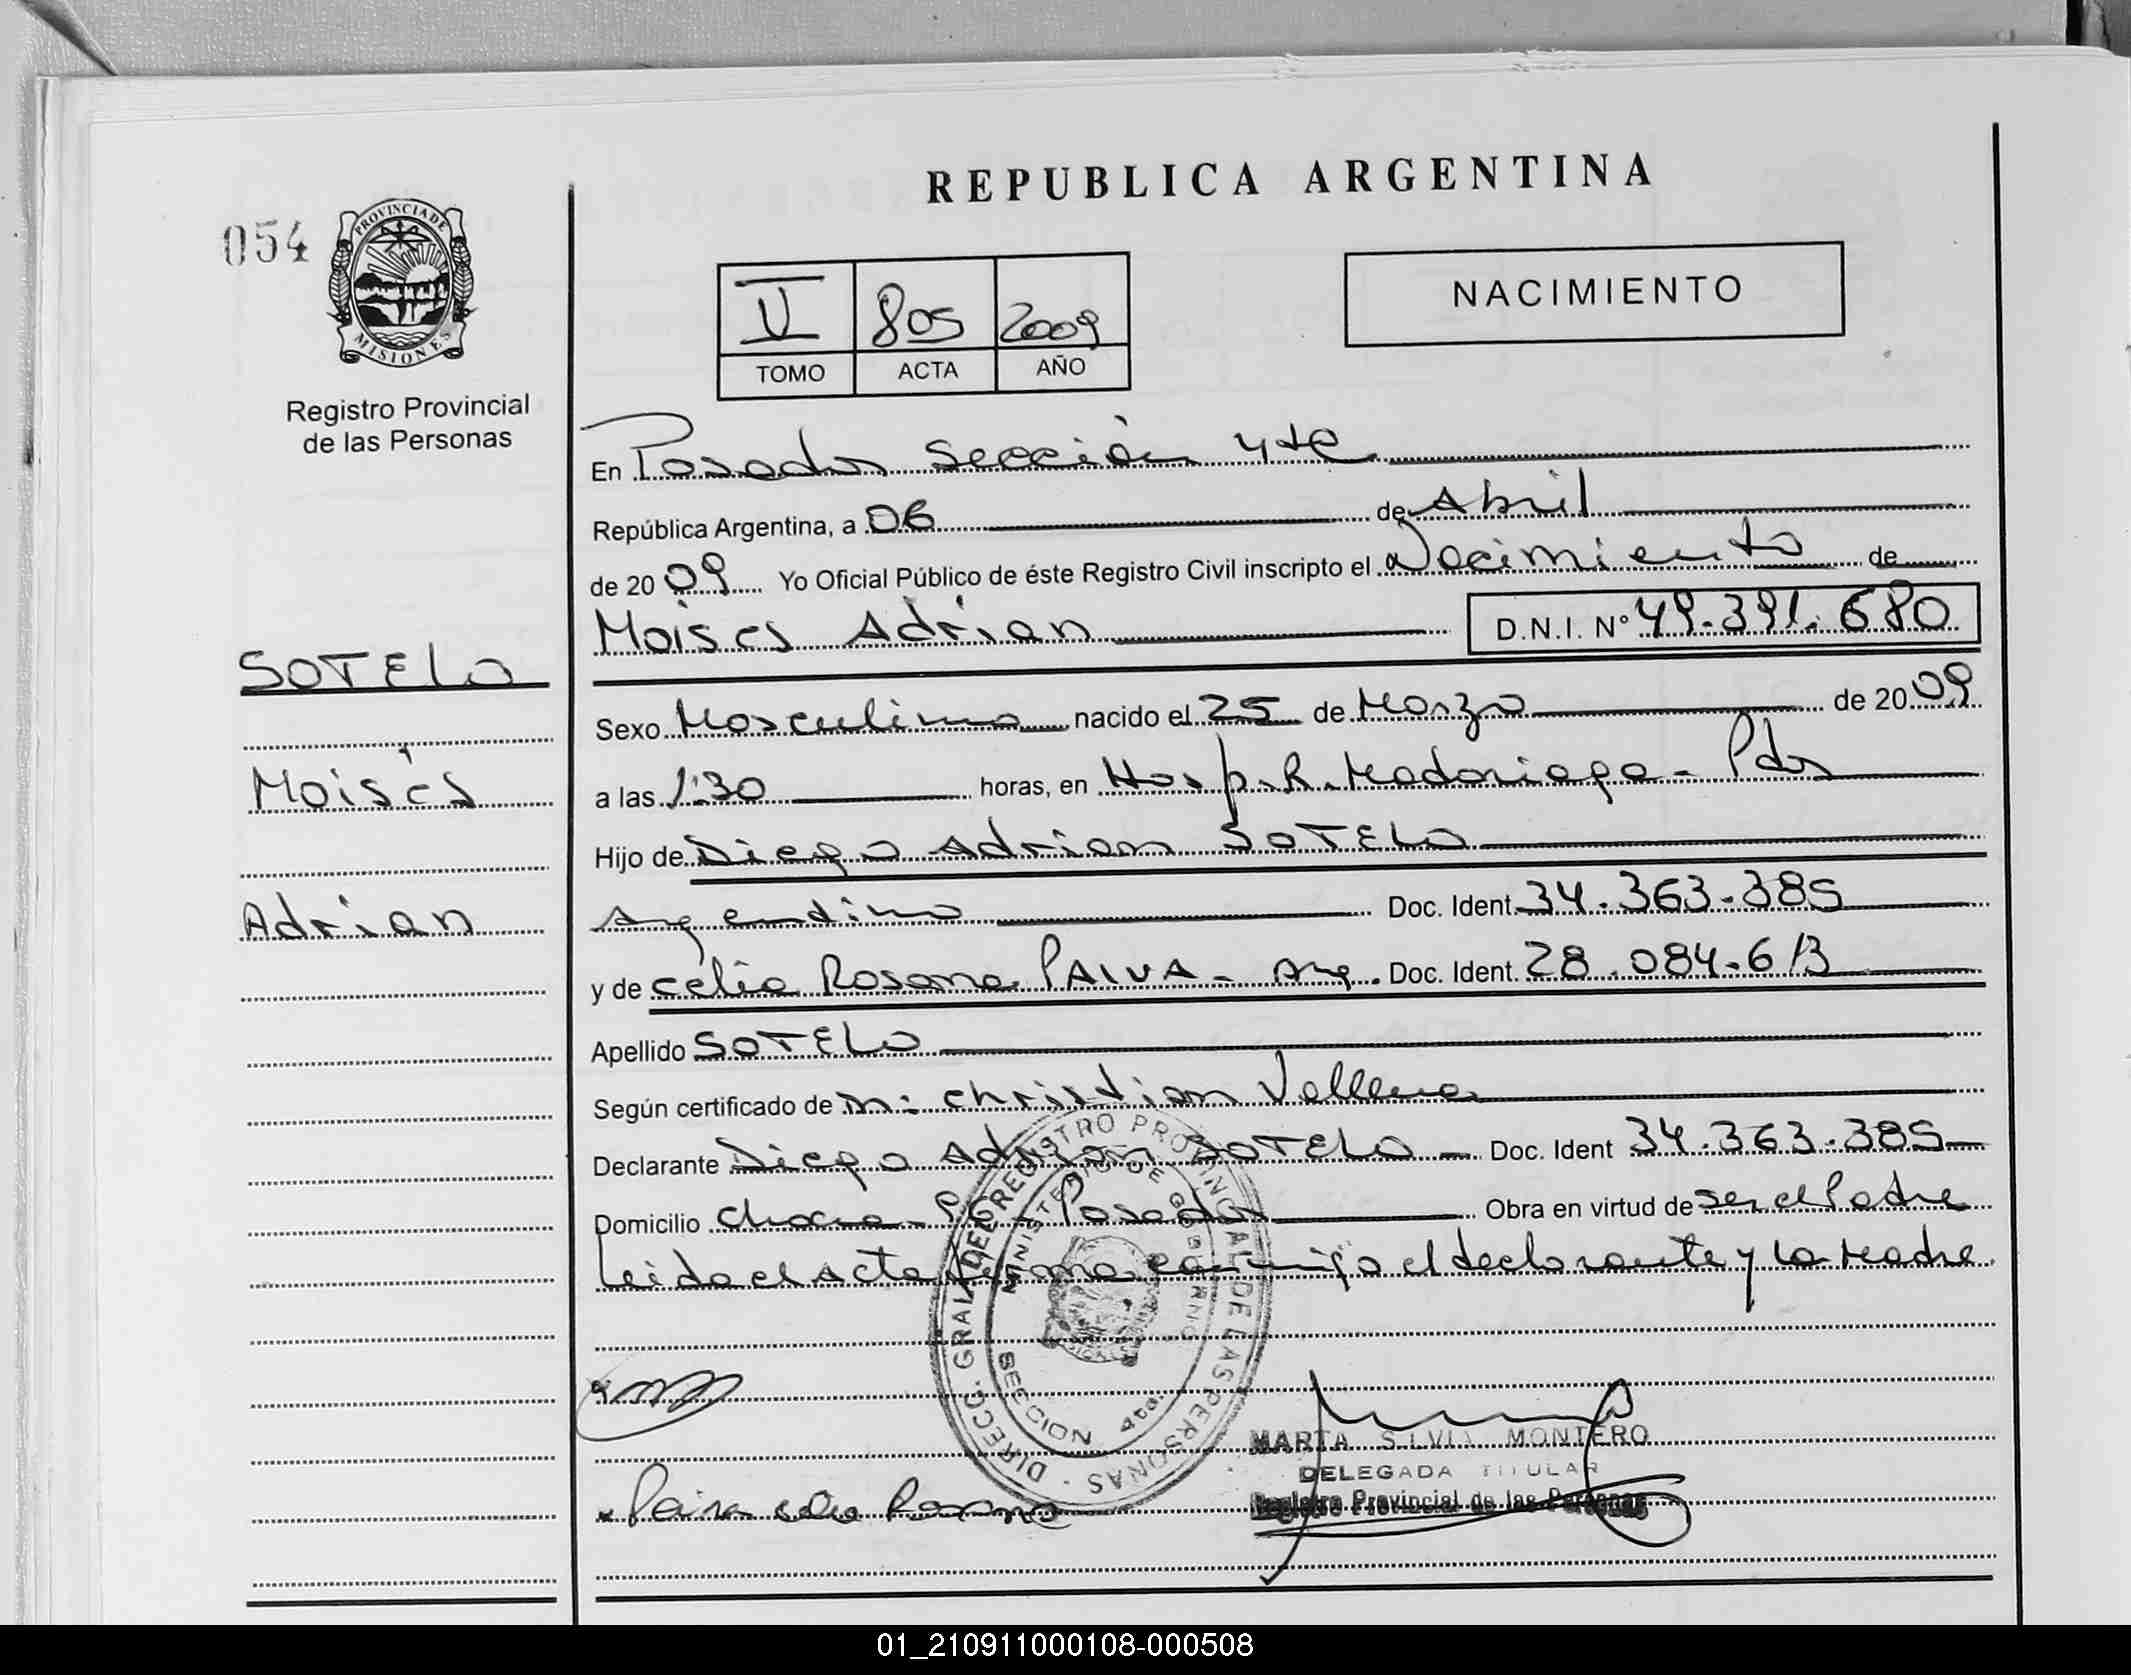 REPUBLICA ARGENTINA
054
PROVINCIA DE
MISIONES
Registro Provincial
de las Personas
V 805 2009
TOMO ACTA AÑO
NACIMIENTO
En Posadas Sección 4ta
República Argentina, a 06 de Abril
de 2009 Yo Oficial Público de éste Registro Civil inscripto el Nacimiento de
Moises Adrian D.N.I. N° 49.391.680
SOTELO
Moisés
Adrian
Sexo Masculino nacido el 25 de Marzo de 2009
a las 1:30 horas, en Hosp. R. Madariaga - Pdas
Hijo de Diego Adrian SOTELO
Argentino Doc. Ident. 34.363.385
y de Celia Rosana PAIVA - Arg. Doc. Ident. 28.084.613
Apellido SOTELO
Según certificado de Christian
Declarante Diego Adrian SOTELO - Doc. Ident 34.363.385
Domicilio Chacra Posadas Obra en virtud de ser el Padre
Leida el Acta firma conmigo el declarante y la Madre
DIRECC. GRAL. DEL REGISTRO PROVINCIAL DE LAS PERSONAS
MINISTERIO DE GOBIERNO
SECCION 4ta.
MARTA SILVIA MONTERO
DELEGADA TITULAR
Registro Provincial de las Personas
Paiva Celia Rosana
01_210911000108-000508